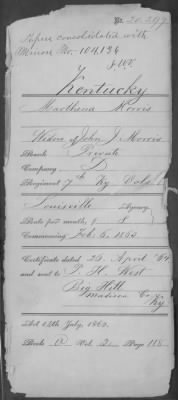 No. 20.299
Papers consolidated with
Minor No. 104,134
Kentucky
Marthena Morris
Widow of John J. Morris
Rank Private
Company D
Regiment 7th Ky Vols
Louisville Agency
Rate per month, $ 8
Commencing Feb. 6. 1862
Certificate dated 25. April '64
and sent to T. H. West
Big Hill
Madison Co.
Ky
Act 14th July, 1862.
Book D Vol. 2 Page 118